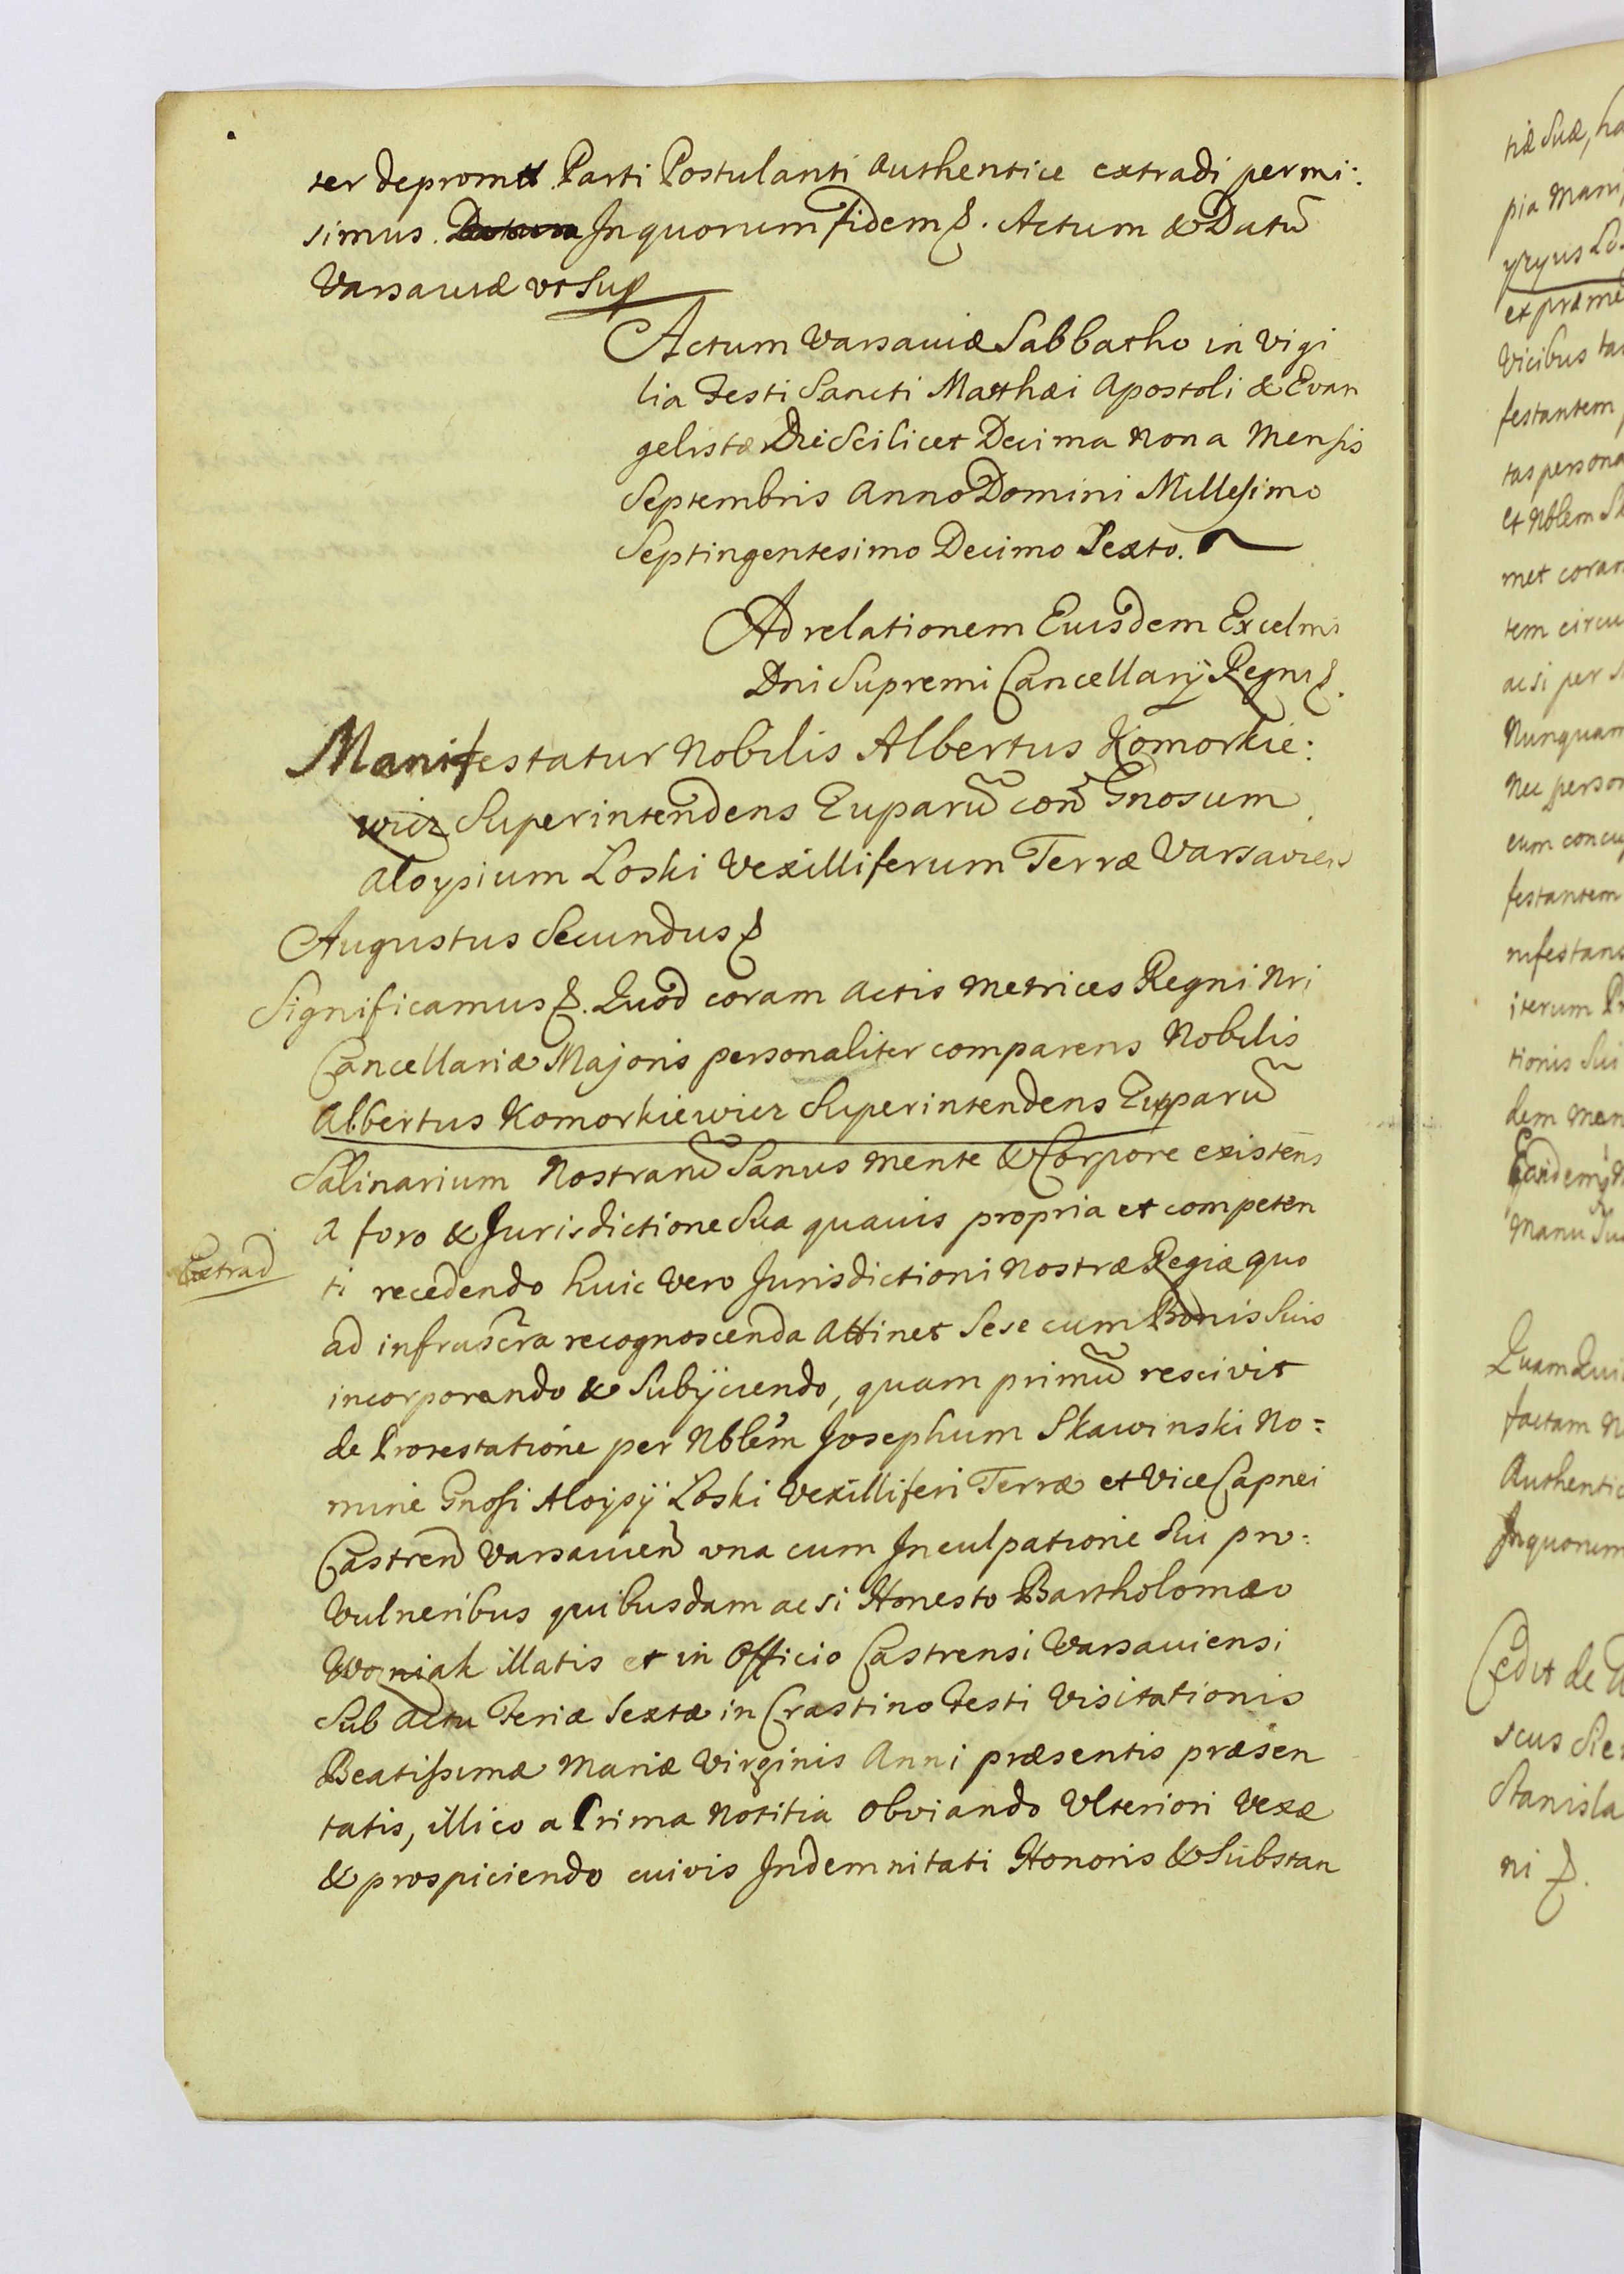 ter depromtt Parti Postulanti Authentice extradi permi:
simus. In quorum fidem &. Actum & Datu͠
Varsaviæ ut Sup
Actum Varsaviæ Sabbatho in Vigi
lia Festi Sancti Matthæi Apostoli & Evan
gelistæ Die Scilicet Decima Nona Mensis
Septembris Anno Domini Millesimo
Septingentesimo Decimo Sexto.
Ad relationem Eiusdem Excelmi
Dni Supremi Cancellarij Regni &.
Manifestatur Nobilis Albertus Komorkie:
wicz Superintendens Zuparu͠ con͠ Gnosum
Aloysium Loski Vexilliferum Terræ Varsavien
Augustus Secundus &
Significamus &. Quod coram Actis Metrices Regni Nri
Cancellariæ Majoris personaliter comparens Nobilis
Albertus Komorkiewicz Superintendens Zuparu͠
Salinarium Nostraru͠ Sanus mente & Corpore existens
a foro & Jurisdictione Sua quavis propria et competen
Extrad
ti recedendo huic vero Jurisdictioni Nostræ Regiæ quo
ad infrascra recognoscenda Attinet Sese cum Bonis Suis
incorporando & Subijciendo, quam primu͠ rescivit
de Protestatione per Nblem Josephum Skawinski No=
mine Gnosi Aloijsij Loski Vexilliferi Terræ et Vice Capnei
Castren Varsavien una cum Inculpatione Sui pro:
Vulneribus quibusdam ac si Honesto Bartholomæo
Wozniak illatis et in Officio Castrensi Varsaviensi
Sub Actu Feriæ Sextæ in Crastino Festi Visitationis
Beatissimæ Mariæ Virginis Anni præsentis præsen
tatis, illico a Prima Notitia obviando Ulteriori Vexæ
& prospiciendo cuivis Indemnitati Honoris & Substan
tiæ Suæ, ha
pia Mani
et præme
Vicibus ta
festantem
tas persona
et Nblem Sk
met coram
tem circu
ac si per
Nunquam
Nec person
eum concu
festantem
nifestans
iterum Pr
tionis Sui
dem Man
Manu Su
Quam Qui
factam N
Authentic
In quorum
Cedit de
scus Sie
Stanisla
ni &.